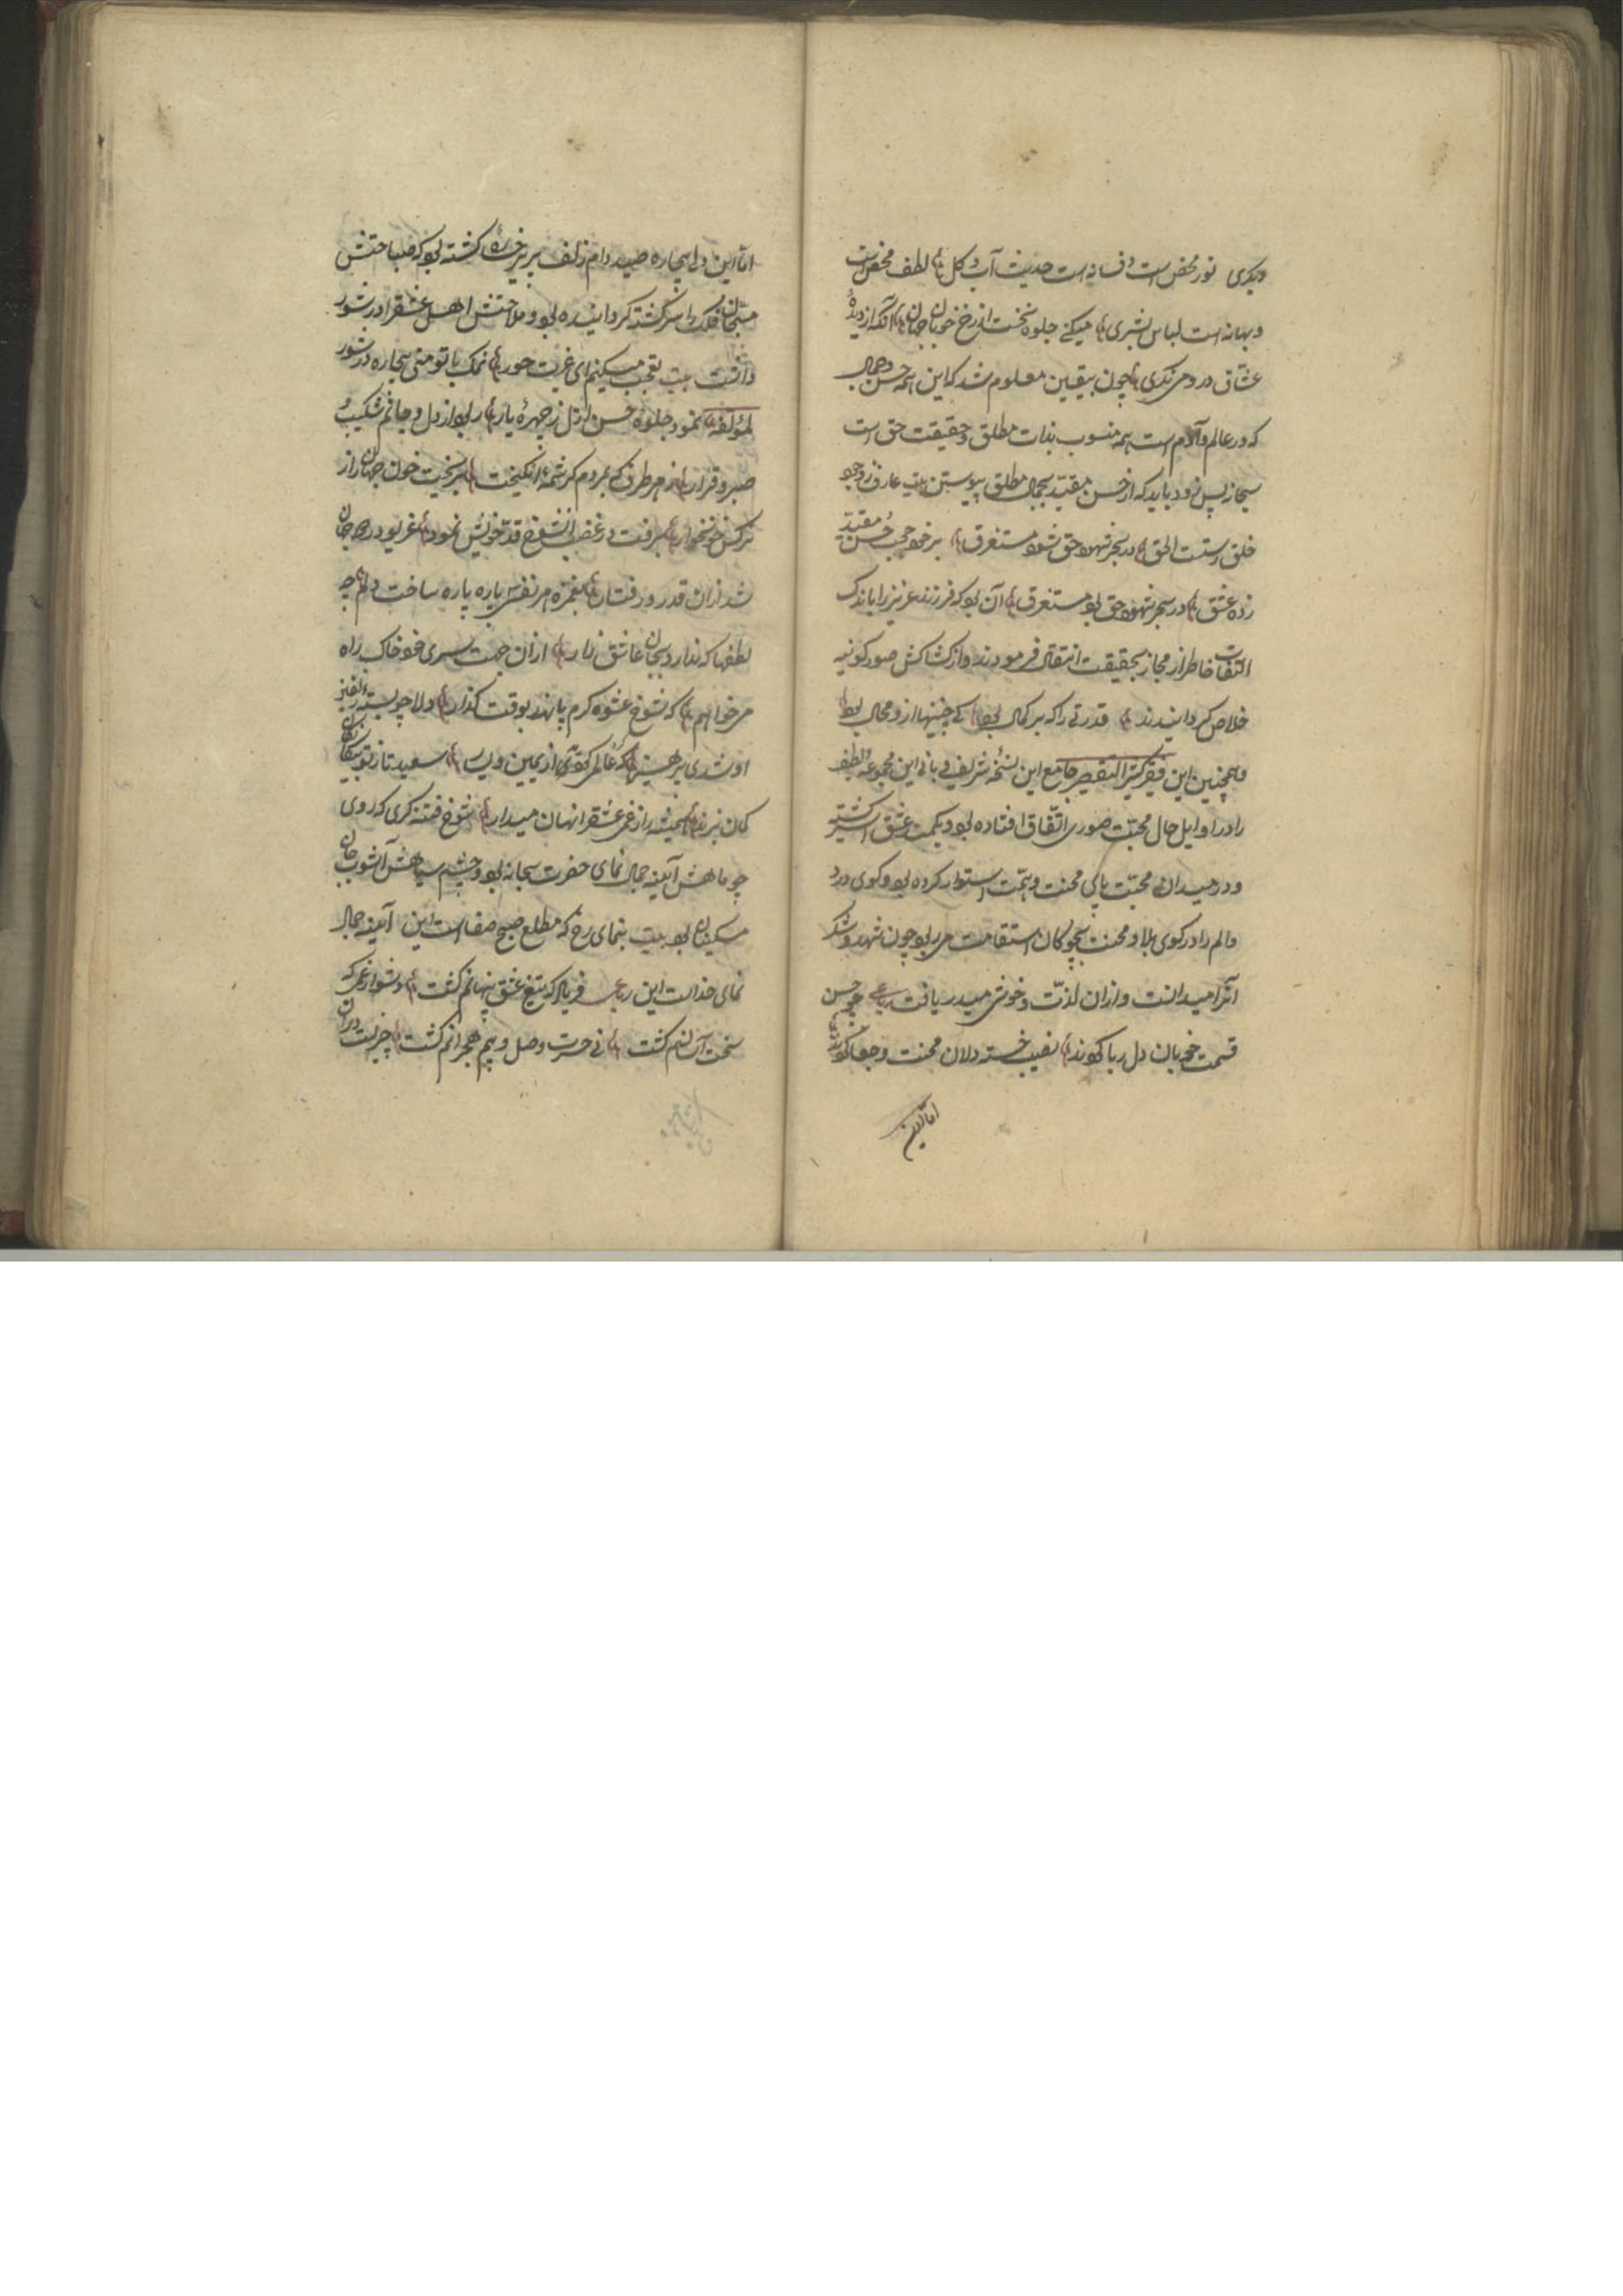 دیگری نور محض است و فسانه است حدیث آب و گل لطف محض است
و بهانه است لباس بشری میکنی جلوه نخست از رخ خوبان جهان آنکه از دیدهٔ
عشاق درو می نگری چون بیقین معلوم شد که این همه حسن و جمال
که در عالم و آدم است همه منسوب بذات مطلق و حقیقت حق است
سبحانه پس زود باید که از حسن مقید بجمال مطلق پیوستن بیت عارف ز وجود
خلق رستست الحق در بحر شهود حق شود مستغرق بر خود حجب حسن مقید
زده عشق در بحر شهود حق بود مستغرق آن بود که فرزند عزیز را باندک
التفات خاطر از مجاز بحقیقت انتقال فرمودند و از کشاکش صور کونیه
خلاص گردانیدند قدرتی را که بر کمال بود کی چنینها ازو محال بود
و همچنین این فقیر کثیر التقصیر جامع این نسخهٔ شریف و بانی این مجموعهٔ لطیف
را در اوایل حال محبت صوری اتفاق افتاده بود و یکمت عشق سرگشته
و در میدان محبت پای محنت و همت استوار کرده بود و کوی درد
و الم را در کوی بلا و محنت بچوگان استقامت می ربود چون شهد و شکر
آنرا میدانست و از آن لذت و خوشی میدریافت رباعی چو حسن
قسمت خوبان دل ربا کردند نصیب خسته دلان محنت و جفا کردند
اما این
اما این دل بیچاره صید دام زلف پری رخی گشته بود که صباحتش
مسیحان فلک را سرگشته گردانیده بود و ملاحتش اهل عشق را در شور
داشت بیت تعجب میکنم ای غیرت حور نمک با تو منی بیچاره در شور
لمؤلفه نمود جلوهٔ حسن ازل ز چهرهٔ یار ربود از دل و جانم شکیب و
صبر و قرار ز هر طرف که بمردم کرشمهٔ انگیخت بریخت خون جهان را ز
نرگس خونخوار برفت در غضب آن شوخ قد خویش نمود غریو در همه جهان
شد از آن قد و رفتار بغمزه هر نفس پاره پاره ساخت دلم چه
لطفها که ندارد بجان عاشق زار از آن جهت سری خود خاک راه
می خواهم که شوخ عشوه گرم پا نهد بوقت گذار دلا چو بستهٔ زلفین
او شدی پرهیز که عالم کفر آمد از یمین و یسار سعید تا ز تو بیگانگان
گمان نبرند همیشه راز غم عشق را نهان میدار شوخ فتنه گری که روی
چو ماهش آینه جمال نمای حضرت سبحانه بود و چشم سیاهش آشوب جان
مسکینان بود بیت بنمای رخ که مطلع صبح صفاست این آینه جمال
نمای خداست این رباعی فریاد که تیغ عشق پنهانم کشت دشوار غمی که
سخت آسانم کشت نی حسرت وصل و بیم هجرانم کشت چیزیست در آن